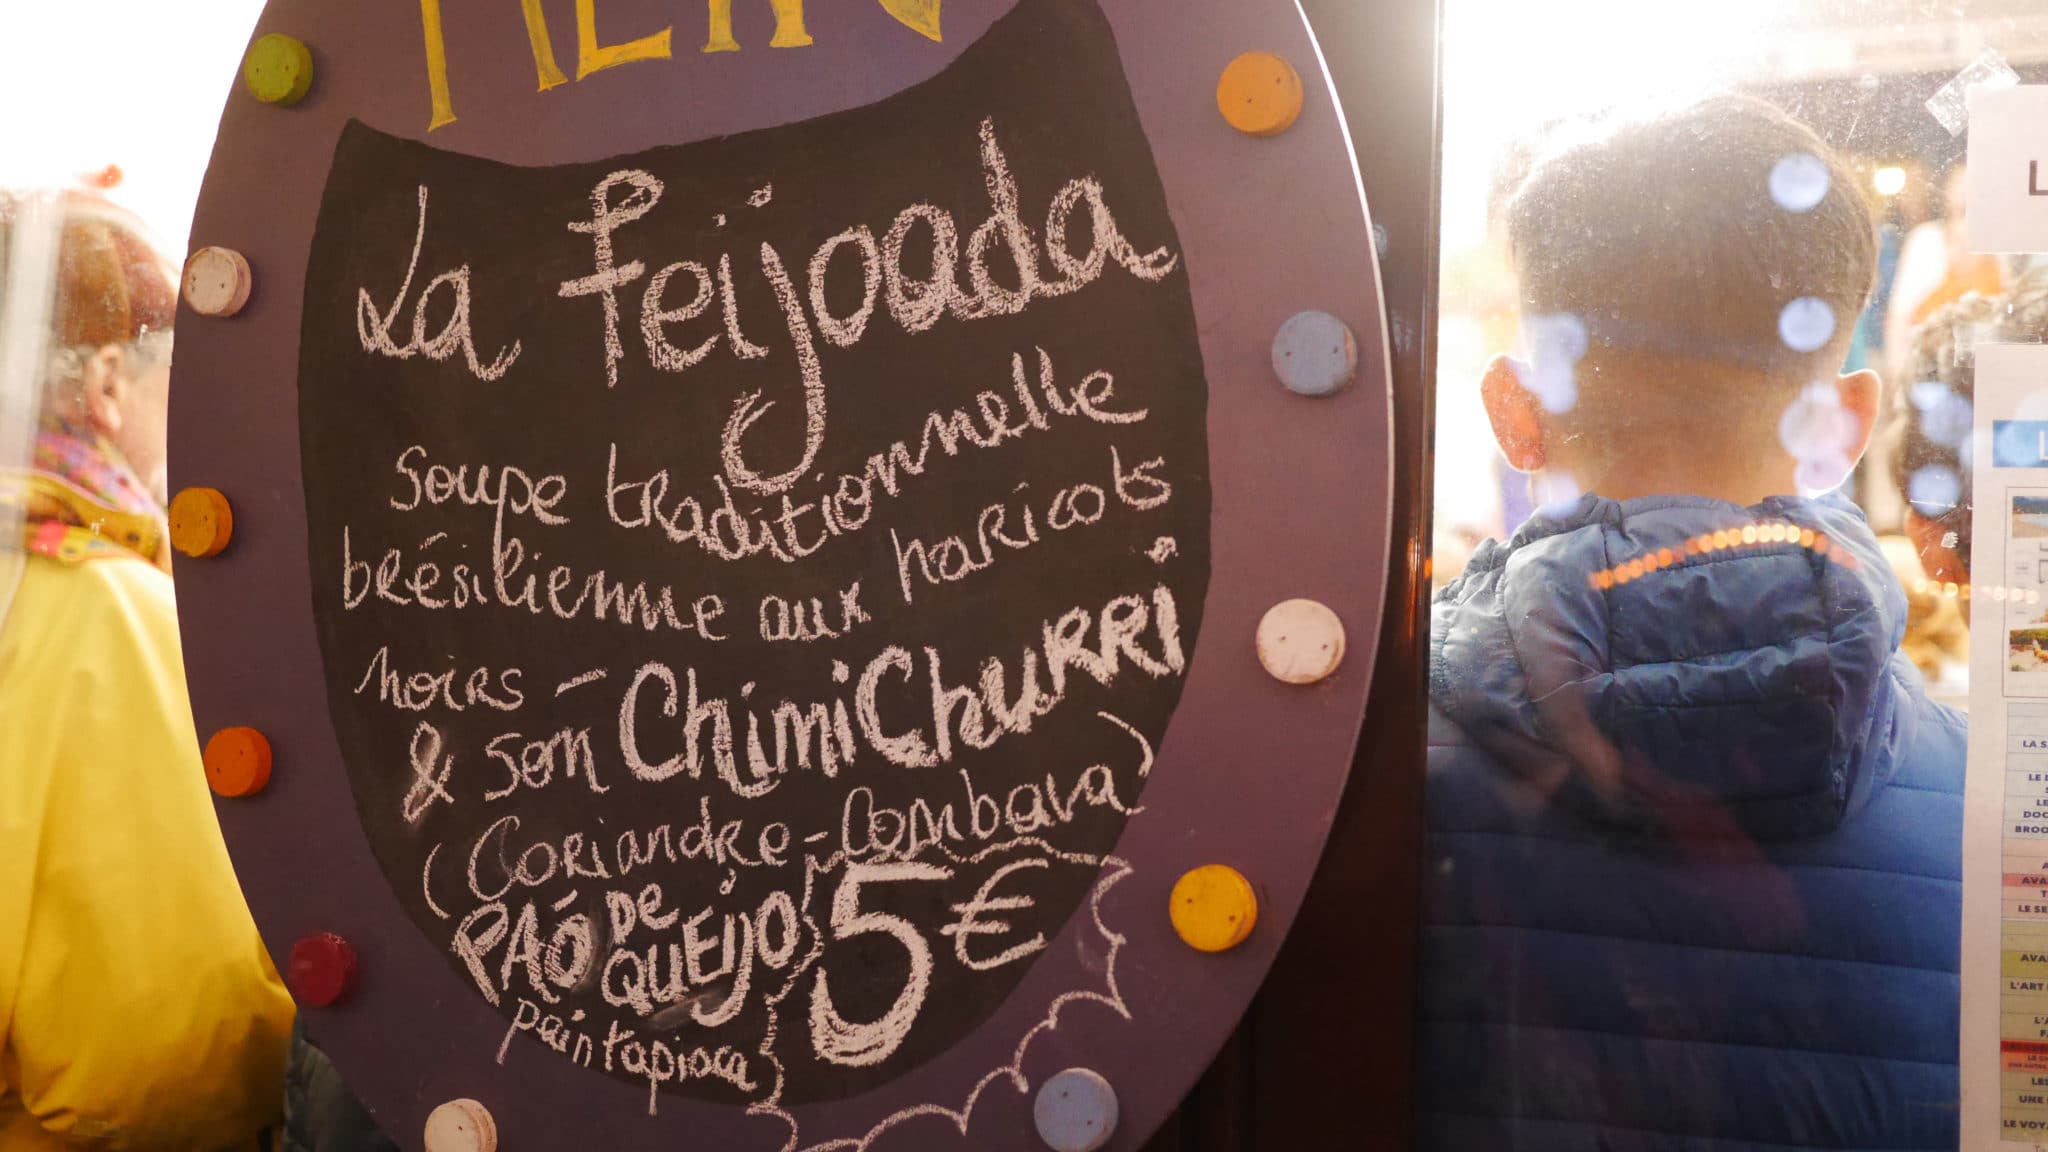 La feijoada
soupe traditionnelle
brésilienne aux haricots
noirs -
& son ChimiChuRRi
(Coriandre - Combava)
PAÓ DE
QUEIJO
pain tapioca
5€
L
LA S
LE
DOC
BROO
AVA
LE SE
AVA
L'ART
LES
UNE
LE VOYA